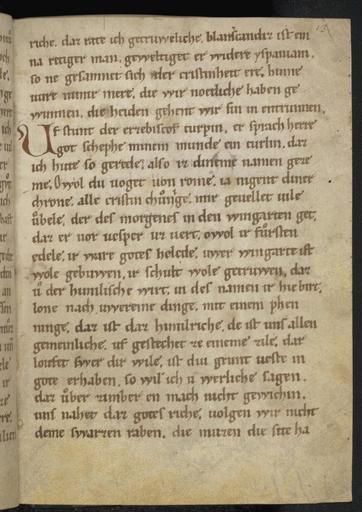 riche. daz rate ich getruweliche. blanscandiz ist ein
na retiger man. geweltiget er widere yspaniam.
so ne gesamnet sich der cristinheit ere. hinne
uure nimir mere. die wir noetliche haben ge
wunnen. die heiden gehent wir sin in entrunnen.
Uf stunt der ercebiscof turpin. er sprach herre
got schephe minem munde ein turlin. daz
ich hute so gerede. also iz dineme namen geze
me. Owol du uoget uon rome. ia nigent diner
chrone. alle cristin chuninge. mir geuellet uile
ubele. der des morgenes in den wingarten get.
daz er uor uesper uz uert. owol ir fursten
edele. ir ware gotes helede. uwer wingarte ist
wole gebuwen. ir schult wole getruwen. daz
u der himilische wirt. in des namen ir hie birt.
lone nach uwereme dinge. mit einem phen
ninge. daz ist daz himilriche. de ist uns allen
gemeinliche. uf gestechet ze eineme zile. daz
loufet swer dir wile. ist diu grunt ueste in
gote erhaben. so wil ich u werliche sagen.
daz uber zimber en mach nicht gewichin.
uns nahet daz gotes riche. uolgen wir nicht
deme swarzen raben. die muzen die site ha